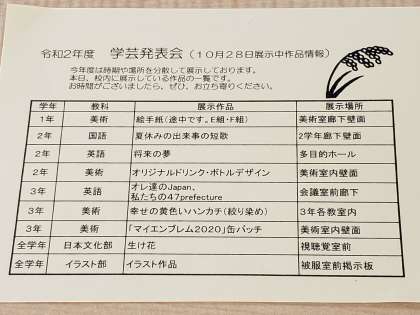 令和2年度　学芸発表会（10月28日展示中作品情報）
今年度は時期や場所を分散して展示しております。
本日、校内に展示している作品の一覧です。
お時間がございましたら、ぜひ、お立ち寄りください。
学年 教科 展示作品 展示場所
1年 美術 絵手紙（途中です。E組・F組） 美術室廊下壁面
2年 国語 夏休みの出来事の短歌 2学年廊下壁面
2年 英語 将来の夢 多目的ホール
2年 美術 オリジナルドリンク・ボトルデザイン 美術室内壁面
3年 英語 オレ達のJapan、
私たちの47prefecture 会議室前廊下
3年 美術 幸せの黄色いハンカチ（絞り染め） 3年各教室内
3年 美術 「マイエンブレム2020」缶バッチ 美術室内壁面
全学年 日本文化部 生け花 視聴覚室前
全学年 イラスト部 イラスト作品 被服室前掲示板